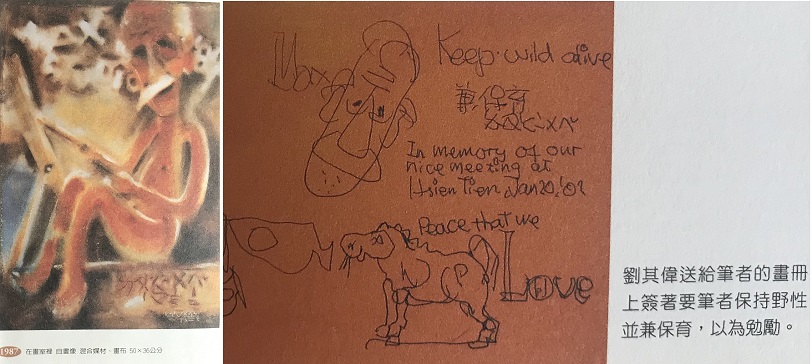 1987 在畫室裡 自畫像 混合媒材、畫布 50×36公分
Max
Keep wild alive
兼保育
In memory of our
nice meeting at
Hsien Tien Jan 20, '02
Peace that we
Love
劉其偉送給筆者的畫冊
上簽著要筆者保持野性
並兼保育，以為勉勵。